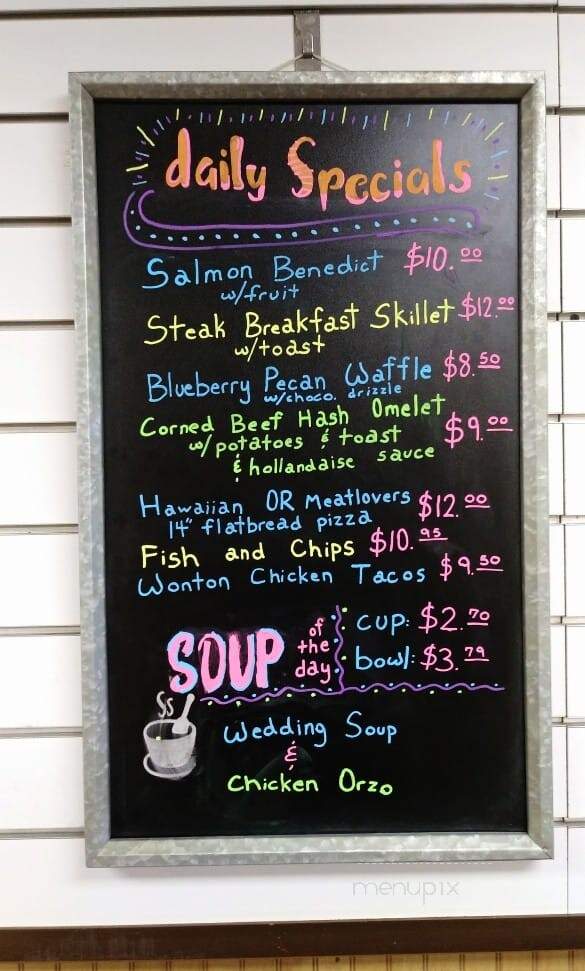 daily Specials
Salmon Benedict $10.00
w/fruit
Steak Breakfast Skillet $12.00
w/toast
Blueberry Pecan Waffle $8.50
w/choco. drizzle
Corned Beef Hash Omelet
w/ potatoes & toast $9.00
& hollandaise sauce
Hawaiian OR Meatlovers $12.00
14" flatbread pizza
Fish and Chips $10.95
Wonton Chicken Tacos $9.50
SOUP of the day: cup: $2.70
bowl: $3.79
Wedding Soup
&
Chicken Orzo
menupix